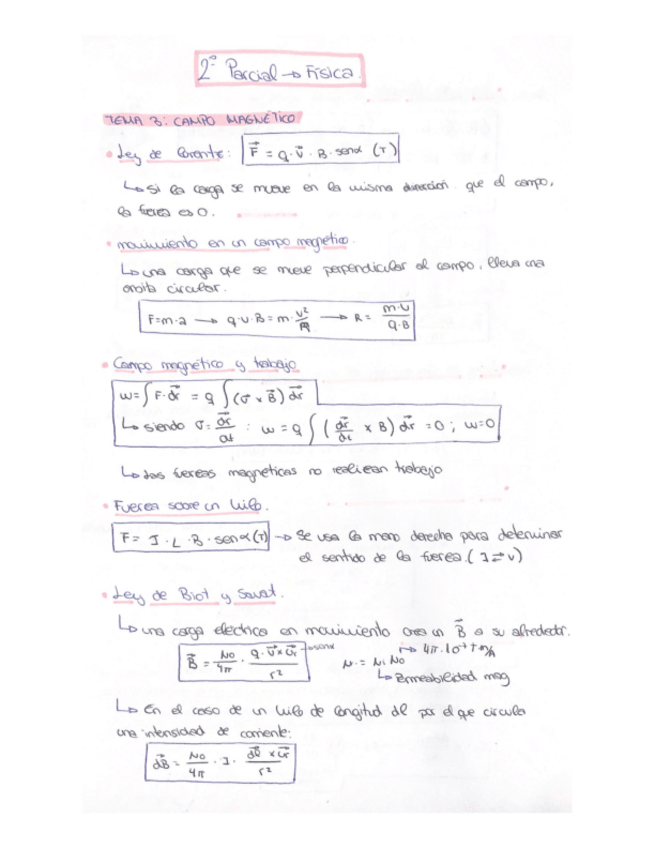 2º Parcial → Física.
TEMA 3: CAMPO MAGNÉTICO
• Ley de Lorentz: F⃗ = q · v⃗ · B · senα (T)
↳ Si la carga se mueve en la misma dirección que el campo,
la fuerza es 0.
• movimiento en un campo magnético.
↳ una carga que se mueve perpendicular al campo, lleva una
órbita circular.
F=m·a → q·v·B = m · v²/R → R = m·v / q·B
• Campo magnético y trabajo
w = ∫ F · dr⃗ = q ∫ (v⃗ x B⃗) dr⃗
↳ siendo v⃗ = dr⃗/dt : w = q ∫ (dr⃗/dt x B) dr⃗ = 0 ; w=0
↳ Las fuerzas magnéticas no realizan trabajo
• Fuerza sobre un hilo.
F = I · L · B · senα (T) → Se usa la mano derecha para determinar
el sentido de la fuerza. (I ⇄ v)
• Ley de Biot y Savat.
↳ una carga eléctrica en movimiento crea un B⃗ a su alrededor.
B⃗ = μ0/4π · q · v⃗ x u⃗r / r² → senα
μ = μr μ0 → 4π·10⁻⁷ T m/A
↳ Permeabilidad mag
↳ En el caso de un hilo de longitud dl por el que circula
una intensidad de corriente:
dB⃗ = μ0/4π · I · dl⃗ x u⃗r / r²